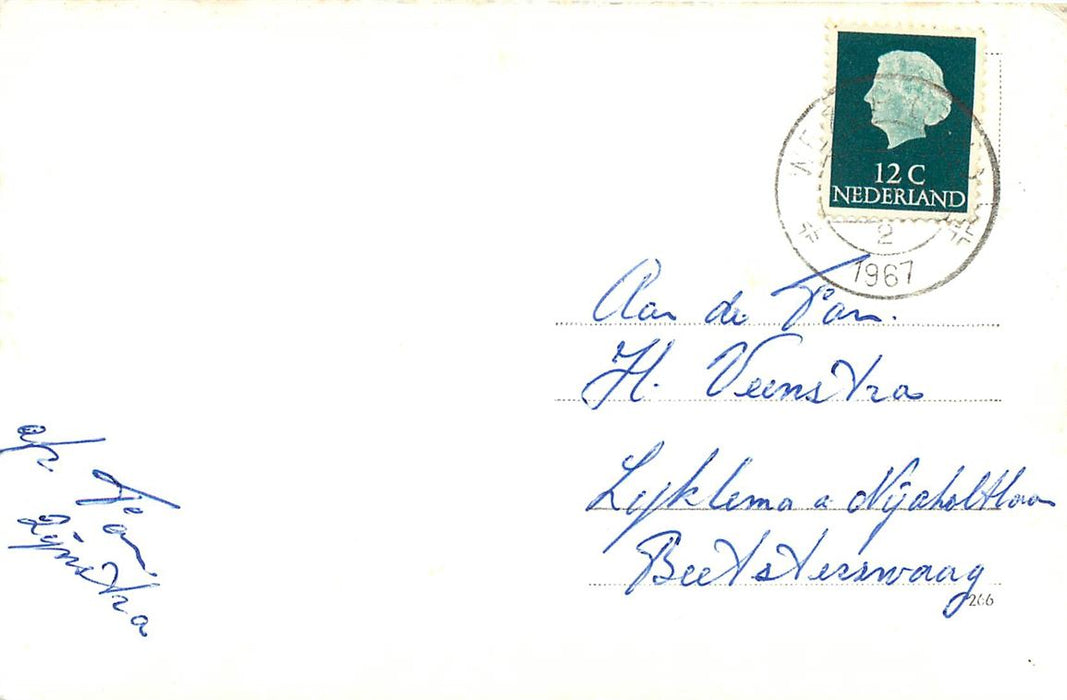 12 C
NEDERLAND
2
1967
Aan de Fam.
H. Veenstra
Lyklema a Nijeholtlaan
Beetsterzwaag
266
afz
Fam.
Lijnstra